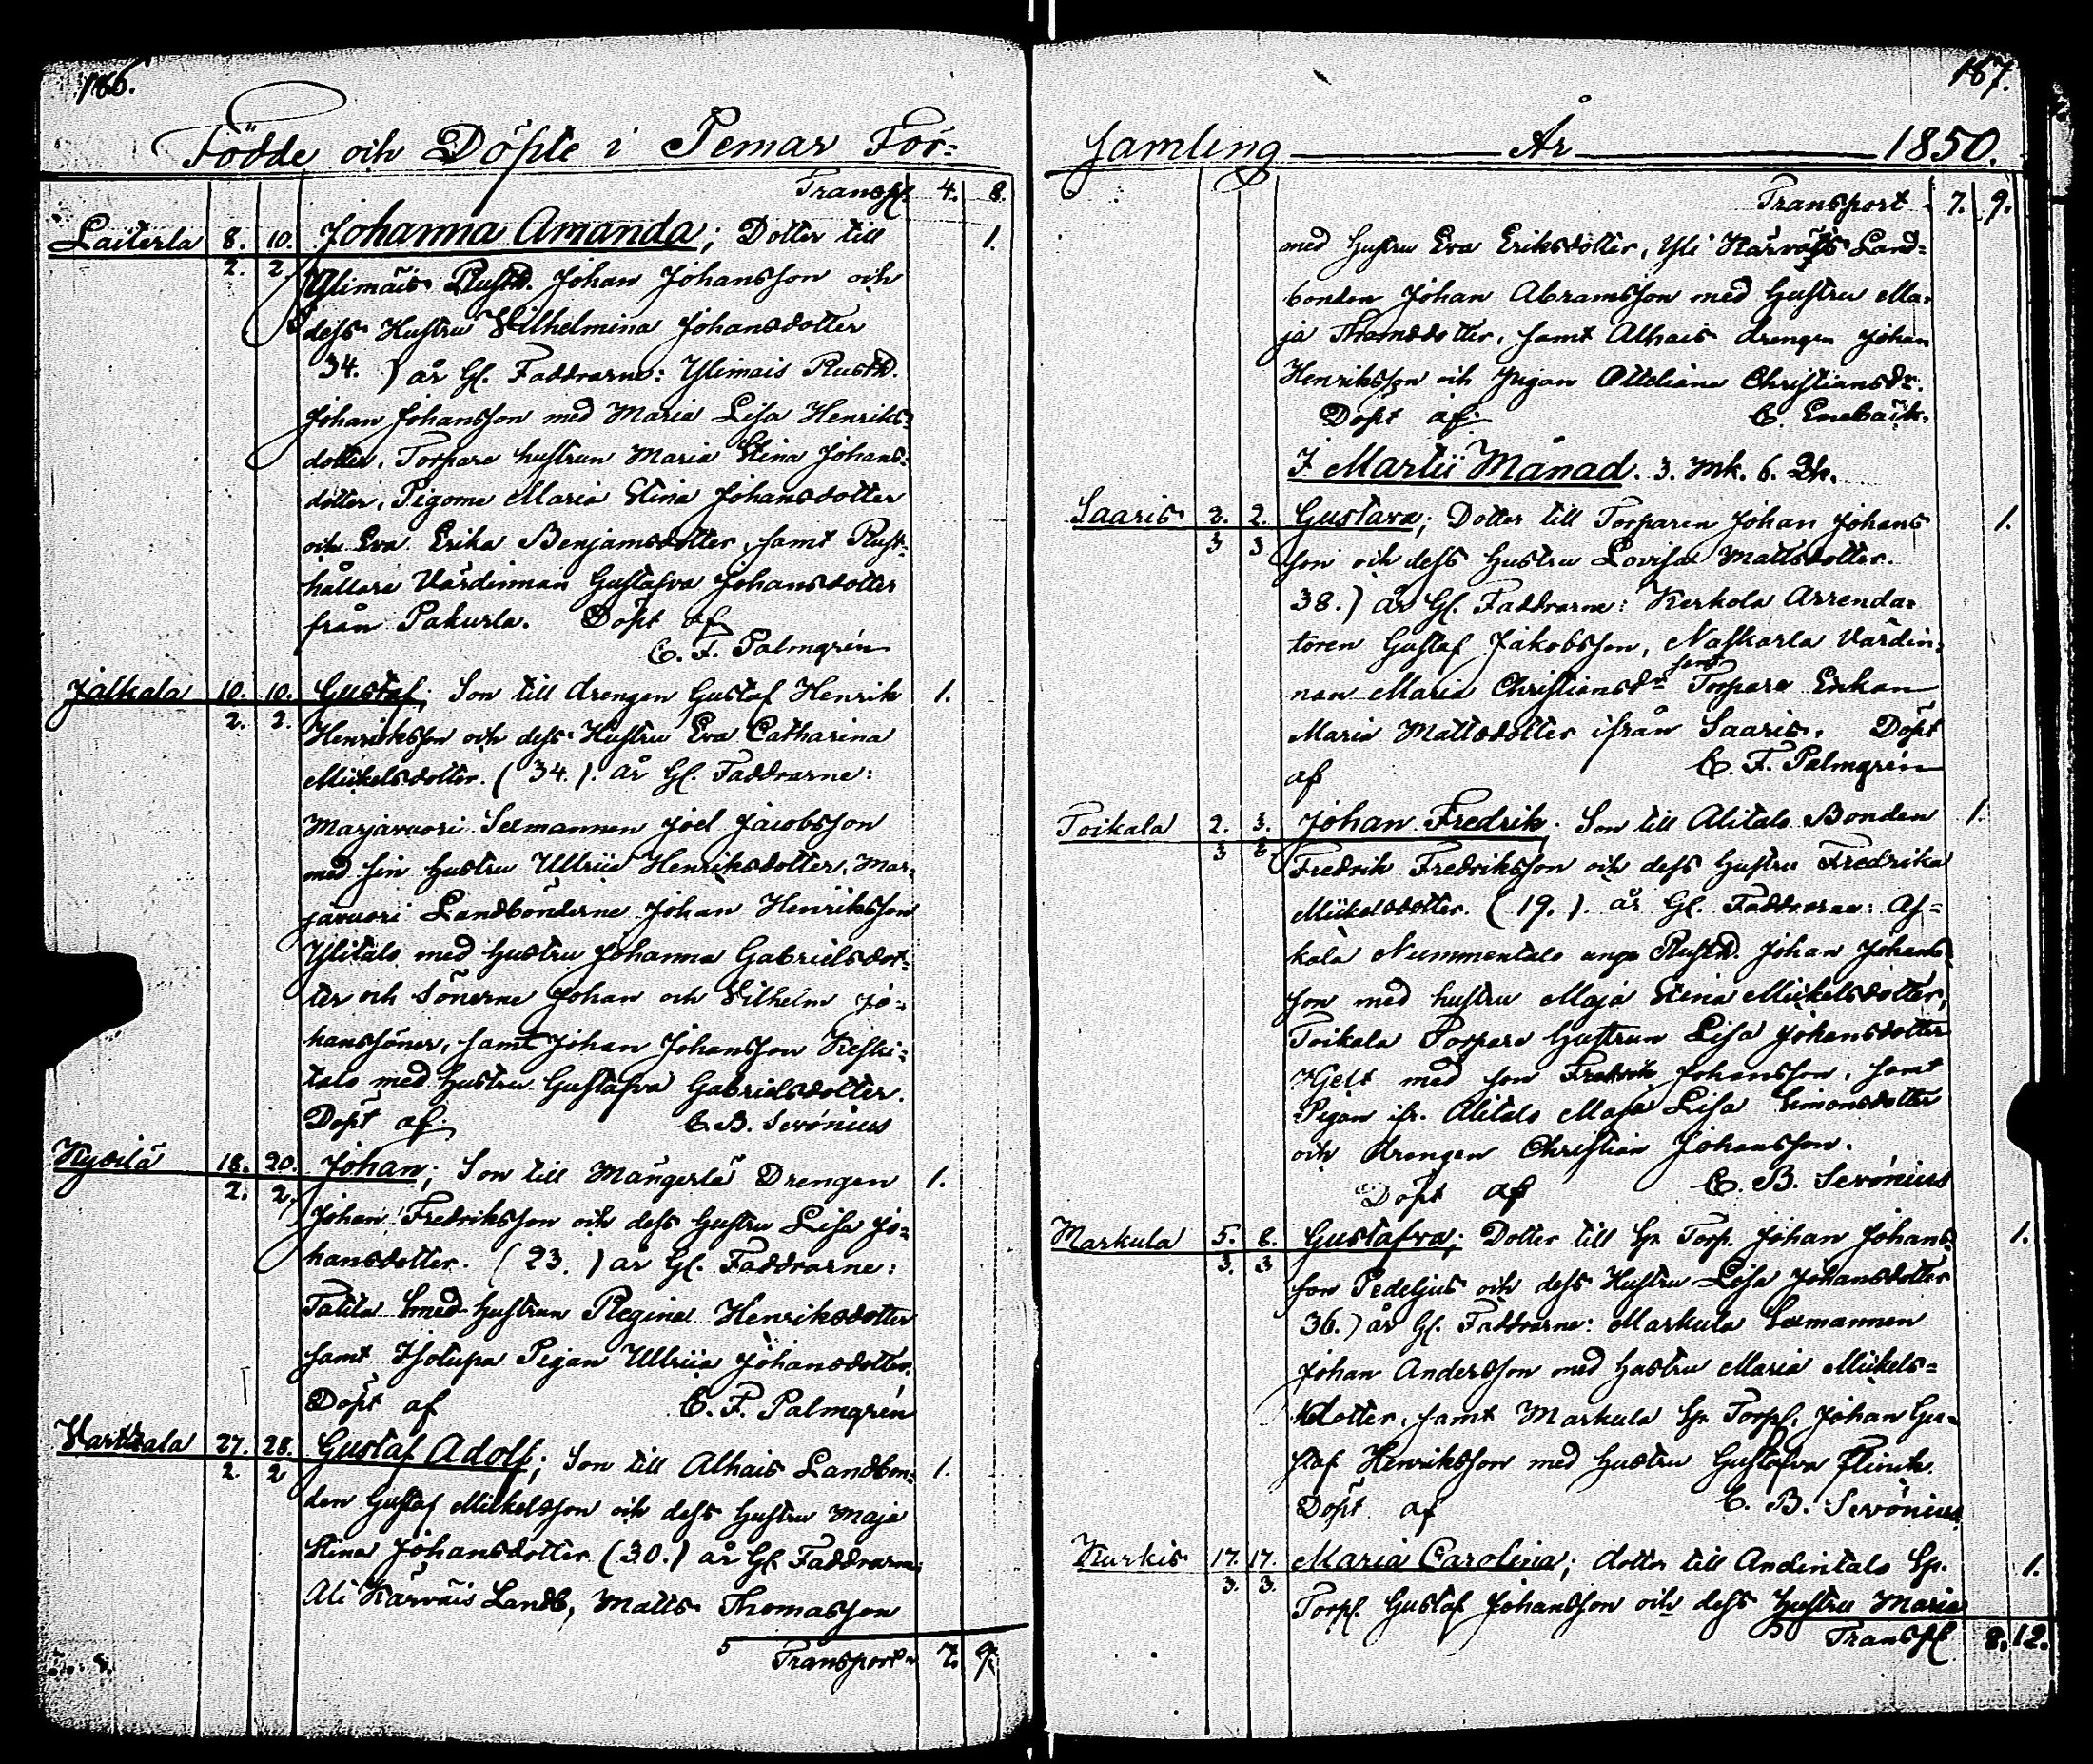 186.
Födde och Döpte i Pemar För-
Transp. 4. 8.
Laiterla 8. 10. Johanna Amanda; Dotter till 1.
2. 2. Ylimäis Rusth. Johan Johansson och
dess Hustru Wilhelmina Johansdotter
34. ) år Gl. Faddrarne: Ylimais Rusth.
Johan Johansson med Maria Lisa Henriks-
dotter, Torpare hustrun Maria Stina Johans-
dotter, Pigorne Maria Stina Johansdotter
och Eva Erika Benjamsdotter, samt Rust-
hållare Värdinnan Gustafva Johansdotter
från Pakurla. Döpt af
C. F. Palmgrén
Jalkala 10. 10. Gustaf; Son till drengen Gustaf Henrik 1.
2. 2. Henriksson och dess Hustru Eva Catharina
Mickelsdotter. ( 34. ). år Gl. Faddrarne:
Marjavuori Sexmannen Joel Jacobsson
med sin hustru Ulrica Henriksdotter, Mar-
javuori Landbönderne Johan Henriksson
Ylitalo med hustru Johanna Gabrielsdot-
ter och Sönerne Johan och Wilhelm Jo-
hanssöner, samt Johan Johansson Keski-
talo med hustru Gustafva Gabrielsdotter.
Döpt af C. B. Serónius
Kysilä 18. 20. Johan; Son till Mangerlä Drengen 1.
2. 2. Johan Fredriksson och dess hustru Lisa Jo-
hansdotter. ( 23. ) år Gl. Faddrarne:
Tatila Smed hustrun Regina Henriksdotter
samt Isotupa Pigan Ullrica Johansdotter.
Döpt af C. F. Palmgrén
27. 28. Gustaf Adolf; Son till Alhais Landbon- 1.
2. 2 den Gustaf Mickelsson och dess hustru Maja
Stina Johansdotter (30.) år Gl. Faddrarne:
Ali Kärväis Landb, Matts Thomasson
Transport 7. 9.
187.
samling År 1850.
Transport 7. 9.
med hustru Eva Eriksdotter, Yli Kärväis Land-
bonden Johan Abramsson med hustru Ma-
ja Thomsdotter, samt Alhais drengen Johan
Henriksson och Pigan Otteliana Christiansdr.
Döpt af C. Enebäck.
I Martii Månad. 3. Mk. 6. Qk.
Saaris 2. 2. Gustava; Dotter till Torparen Johan Johans 1.
3 3 son och dess hustru Lovisa Mattsdotter.
38.) år Gl. Faddrarne: Kerkola Arrenda-
toren Gustaf Jakobsson, Naskarla Värdin-
nan Maria Christiansdr samt Torpare Enkan
Maria Mattsdotter ifrån Saaris. Döpt
af C. F. Palmgrén
Toikala 2. 3. Johan Fredrik. Son till Alitalo Bonden 1.
3 3 Fredrik Fredriksson och dess hustru Fredrika
Mickelsdotter. ( 19. ). år Gl. Faddrarne: As-
kala Nummentalo unga Rusth. Johan Johans-
son med hustru Maja Stina Mickelsdotter,
Toikala Torpare hustrun Lisa Johansdotter
Hjelt med son Fredrik Johansson, samt
Pigan ifr. Alitalo Maja Lisa Simonsdotter
och drengen Christian Johansson.
Döpt af C. B. Serónius
Markula 5. 6. Gustafva; Dotter till Sp. Torp. Johan Johans- 1.
3. 3 son Pedeljus och dess Hustru Lisa Johansdotter
36.) år Gl. Faddrarne: Markula Sexmannen
Johan Andersson med hustru Maria Mickels-
dotter, samt Markula Sp. Torp. Johan Gu-
staf Henriksson med hustru Gustafva Flinck.
Döpt af C. B. Serónius
Kurkis 17. 17. Maria Carolina; dotter till Andintalo Sp. 1.
3. 3. Torp. Gustaf Johansson och dess hustru Maria
Transp 8. 12.